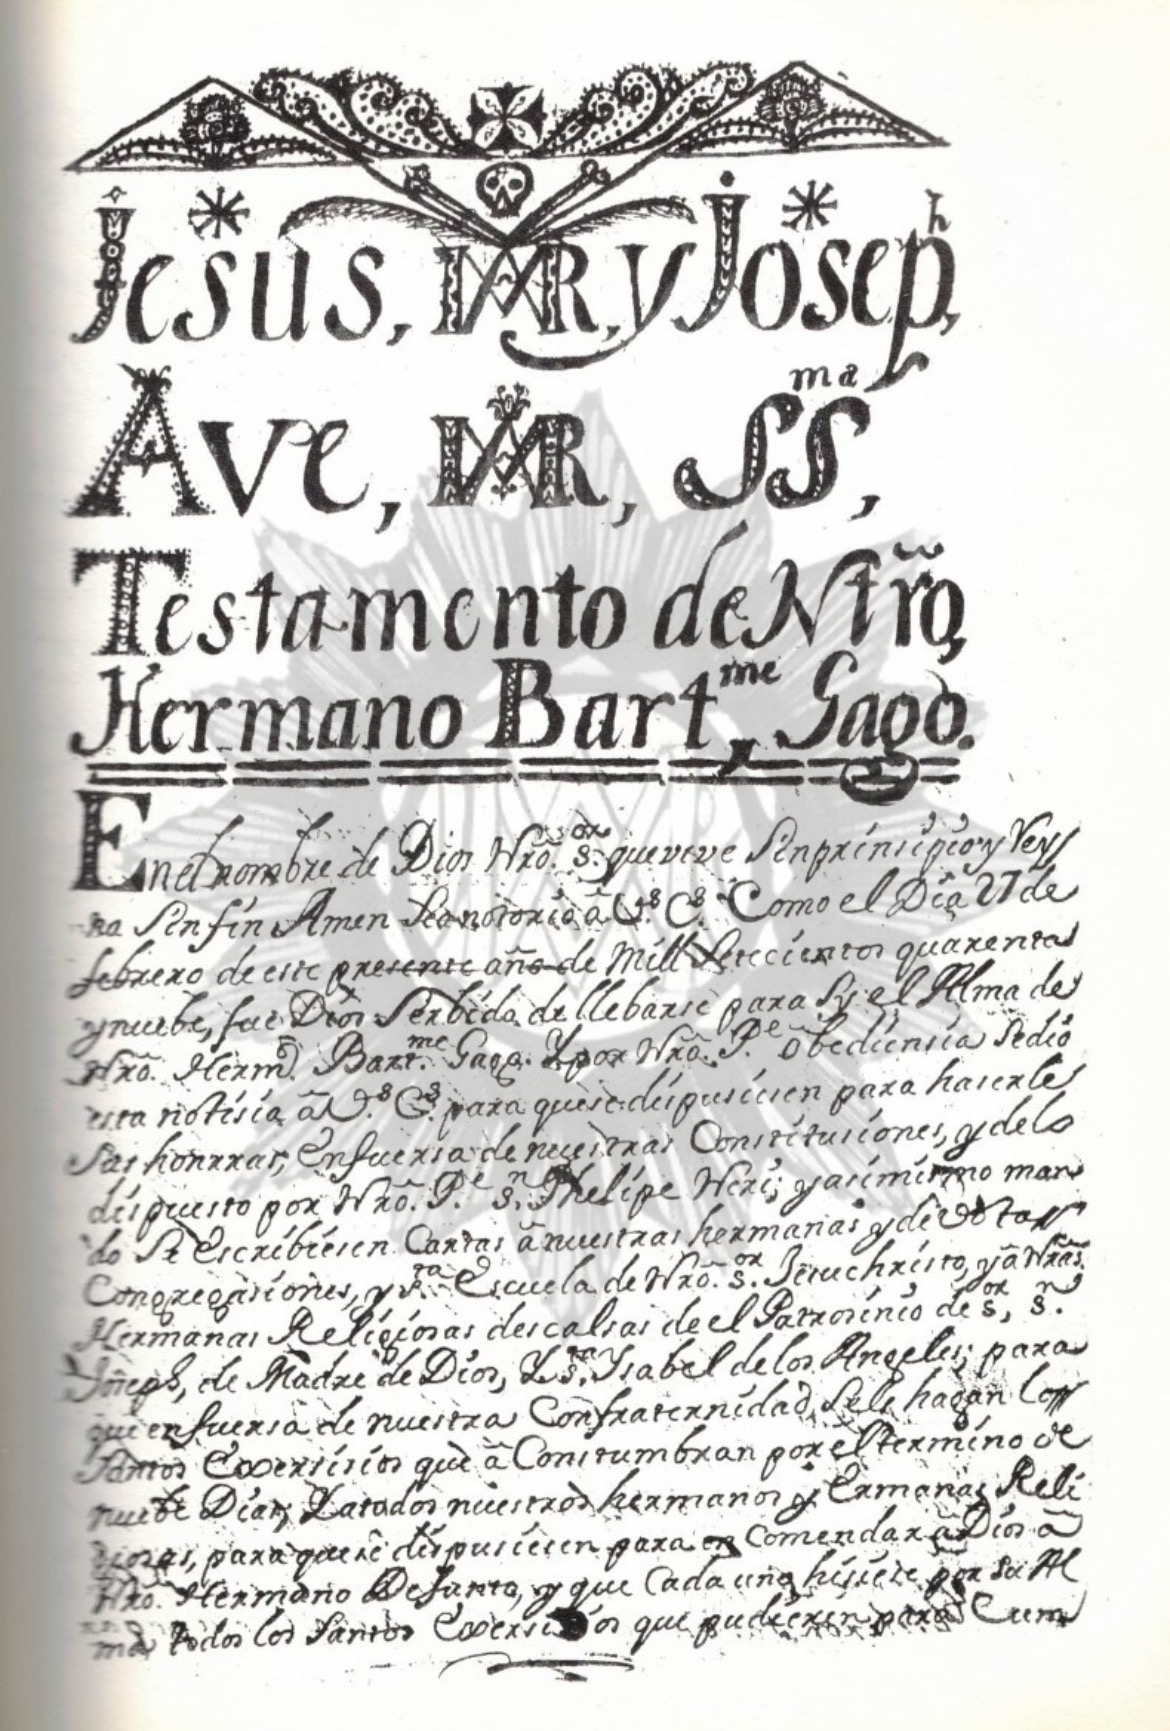 Jesus, MAR, y Joseph,
Ave, MAR, SSma,
Testamento de Ntro,
Hermano Bartme, Gago.
En el nombre de Dios Nro. Sor. que vive Sin prinsipio y Reyna
na Sin fin Amen Sea notorio â Vs. Cs. Como el Dia 27 de
febrero de este presente año de Mill Setecientos quarenta
y nuebe, fue Dios Serbido de llebarse para Sy el Alma de
Nro. Hermo. Bartme. Gago. Y por Nro. Pe. Obediensia Sedió
esta notisia â Vs. Cs. para que se dispusiesen para haserle
Sus honrras, En fuersa de nuestras Constitusiones, y de lo
dispuesto por Nro. Pe. Sn. Phelipe Neri; y asimismo man
do Se Escribiesen Cartas â nuestras hermanas y devotas
Congregasiones, y Sta. Escuela de Nro. Sor. Jesuchristo, y â Nras.
Hermanas Religiosas descalsas de el Patrosinio de Sor, Sn.
Joseph, de Madre de Dios, Y Sta. Ysabel de los Angeles; para
que en fuersa de nuestra Confraternidad, Sele hagan los
Santos Exersisios que â Constumbran por el termino de
nuebe Dias; Y a todos nuestros hermanos y Ermanas Reli
giosas, para que se dispusiesen para en Comendar â Dios â
Nro. Hermano Defunto, y que Cada uno hisiese por su Al
ma todos los Santos Exersisios que pudieren para Cum